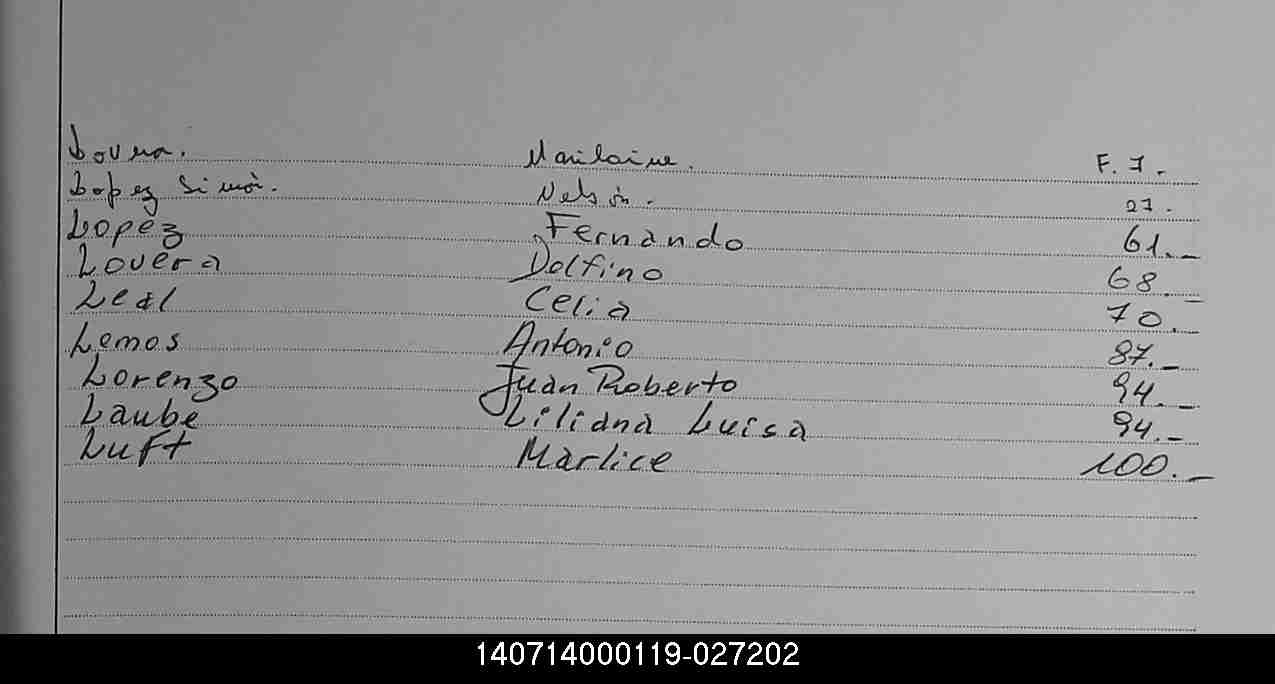 Lovera. Marilaine. F. 7.-
Lopez Simón. Nelsón. 27.
Lopez Fernando 61.-
Lovera Delfino 68.-
Leal Celia 70.-
Lemos Antonio 87.-
Lorenzo Juan Roberto 94.-
Laube Liliana Luisa 94.-
Luft Marlice 100.-
140714000119-027202